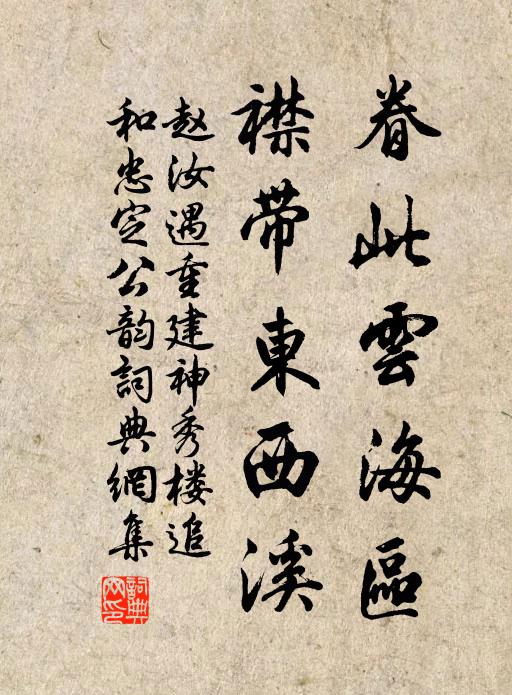 眷此雲海區
襟带東西溪
赵汝遇重建神秀楼追
和忠定公韵詞典網集
詞典网印